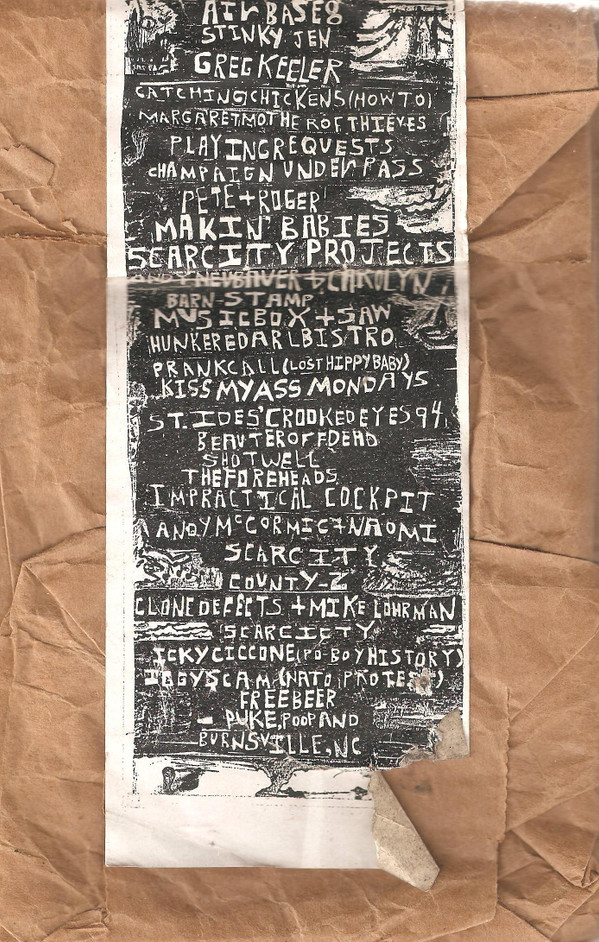 AIR BASE 8
STINKY JEN
GREG KEELER
CATCHING CHICKENS (HOW TO)
MARGARET MOTHER OF THIEVES
PLAYING REQUESTS
CHAMPAIGN UNDERPASS
PETE + ROGER
MAKIN' BABIES
SCARCITY PROJECTS
NEUBAUER + CAROLYN
BARN-STAMP
MUSICBOX + SAW
HUNKERED AR L BISTRO
PRANK CALL (LOST HIPPY BABY)
KISS MY ASS MONDAYS
ST. IDES' CROOKED EYES 94
BEAUTER OFF DEAD
SHOTWELL
THE FOREHEADS
IMPRACTICAL COCKPIT
ANDY MCCORMIC + NAOMI
SCARCITY
COUNTY-Z
CLONE DEFECTS + MIKE LOHRMAN
SCARCITY
ICKY CICCONE (PO-BOY HISTORY)
IGGY SCAM (NATO PROTEST)
FREE BEER
PUKE, POOP AND
BURNSVILLE, NC